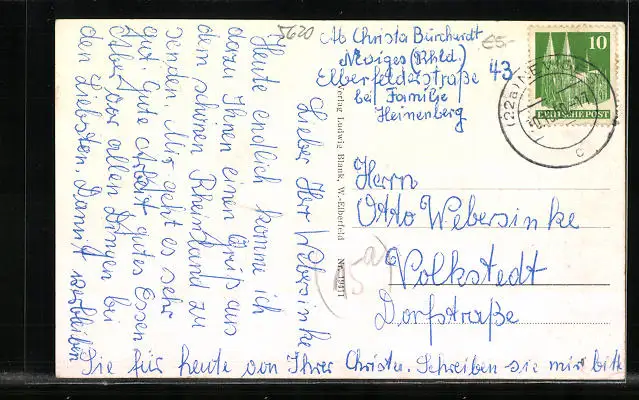 5620
Ab Christa Burchardt
€5.-
Neviges (Rhld.)
Elberfeldzstraße 43
bei Familje
Heinenberg
10
DEUTSCHE POST
(22a) NEVIGES
c
Verlag Ludwig Blank, W.-Elberfeld Nr.
Herrn
Otto Webersinke
Volkstedt
Dorfstraße
Lieber Herr Webersinke
Heute endlich komme ich
dazu Ihnen einen Gruß aus
dem schönen Rheinland zu
senden. Mir geht es sehr
gut Gute Arbeit gutes Essen
Aber vor allen Dingen bei
den Liebsten. Damit verbleiben
Sie für heute von Ihrer Christa. Schreiben sie mir bitte